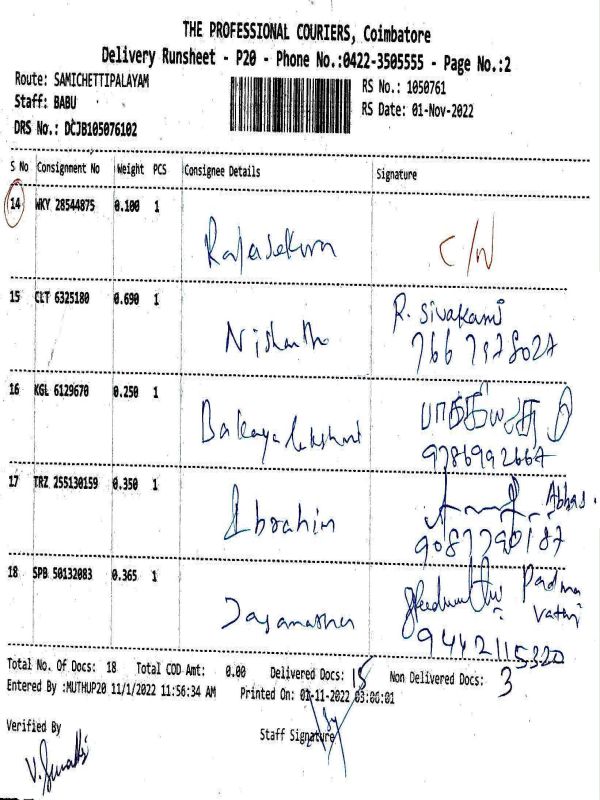 THE PROFESSIONAL COURIERS, Coimbatore
Delivery Runsheet - P20 - Phone No.:0422-3505555 - Page No.:2
Route: SAMICHETTIPALAYAM
RS No.: 1050761
Staff: BABU
RS Date: 01-Nov-2022
DRS No.: DCJB105076102
S No Consignment No Weight PCS Consignee Details Signature
14 WKY 28544875 0.100 1
Rajasekaran C/N
15 CLT 6325180 0.690 1 R. Sivakami
Nishanth 766 797 8027
16 KGL 6129670 0.250 1
Bakayalakshmi 9786992667
17 TRZ 255130159 0.350 1 Abbas.
Ibrahim 9087790187
18 SPB 50132083 0.365 1 Padma
vathi
Jayamathu 9442115320
Total No. Of Docs: 18 Total COD Amt: 0.00 Delivered Docs: 15 Non Delivered Docs: 3
Entered By :MUTHUP20 11/1/2022 11:56:34 AM Printed On: 01-11-2022 03:06:01
Verified By Staff Signature